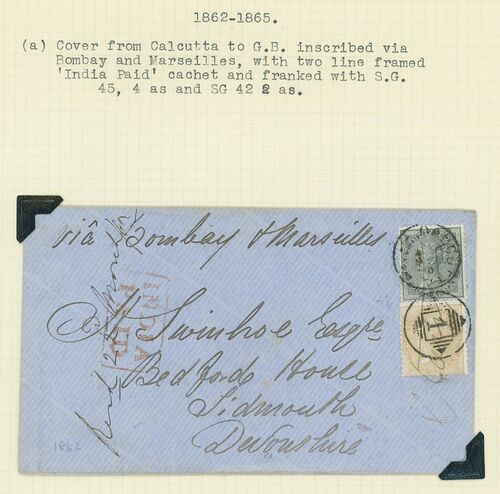 1862-1865.
(a) Cover from Calcutta to G.B. inscribed via
Bombay and Marseilles, with two line framed
'India Paid' cachet and franked with S.G.
45, 4 as and SG 42 2 as.
viâ Bombay & Marseilles
INDIA
PAID
Swinhoe Esqre
Bedford House
Sidmouth
Devonshire
1
1862